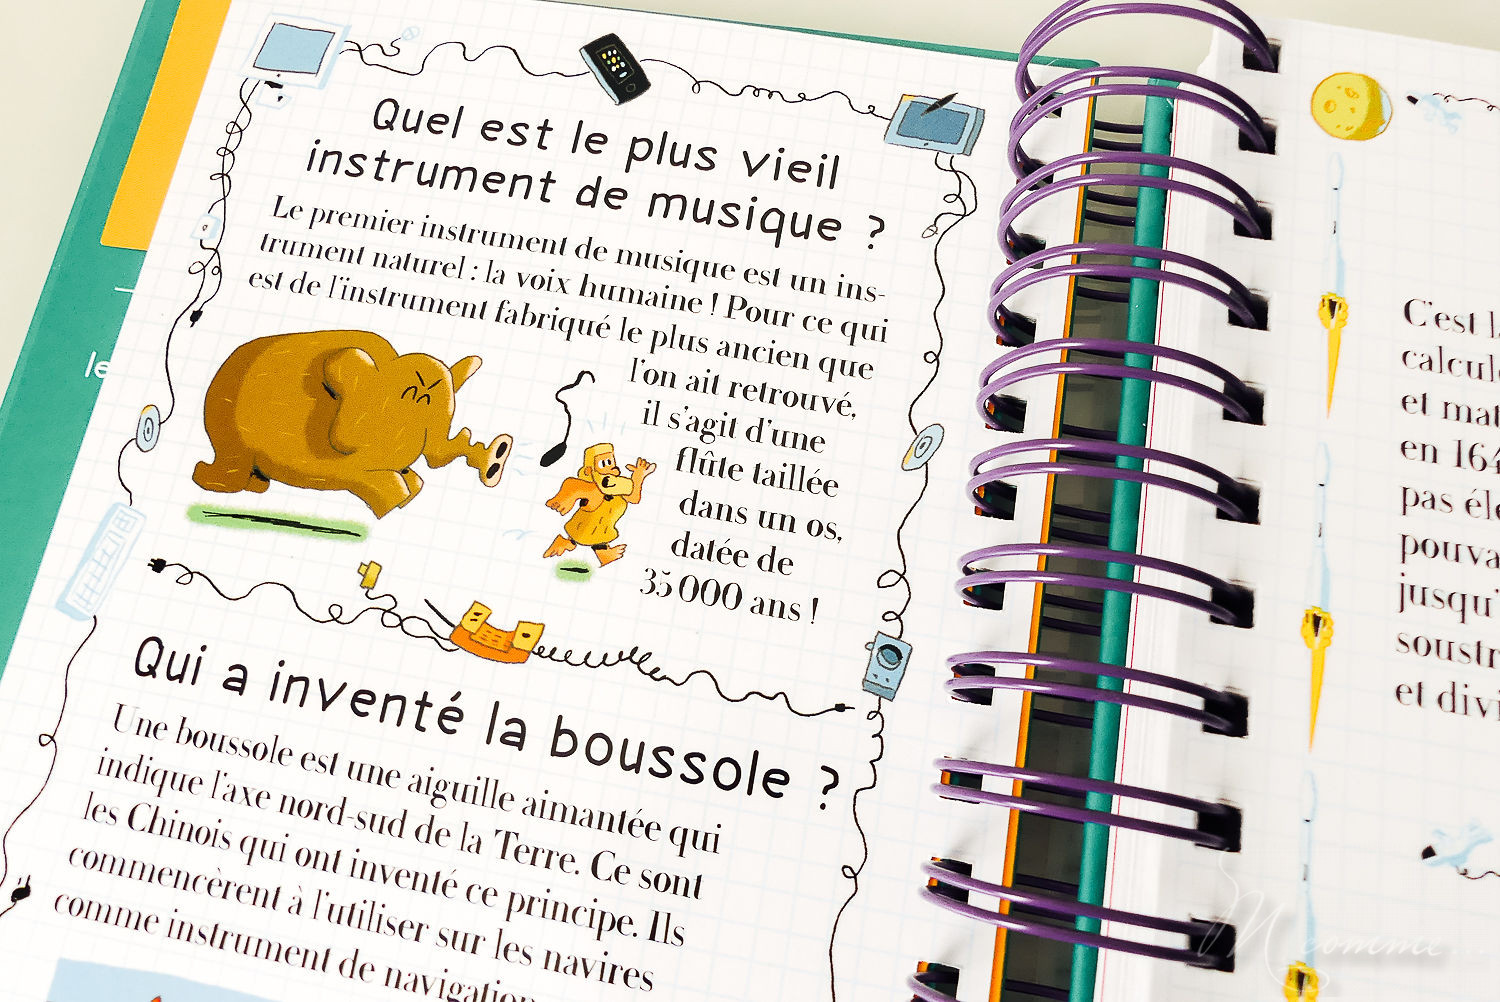 Quel est le plus vieil
instrument de musique ?
Le premier instrument de musique est un ins-
trument naturel : la voix humaine ! Pour ce qui
est de l'instrument fabriqué le plus ancien que
l'on ait retrouvé,
il s'agit d'une
flûte taillée
dans un os,
datée de
35 000 ans !
Qui a inventé la boussole ?
Une boussole est une aiguille aimantée qui
indique l'axe nord-sud de la Terre. Ce sont
les Chinois qui ont inventé ce principe. Ils
commencèrent à l'utiliser sur les navires
comme instrument de navigation
le
C'est
calcul
et mat
en 164
pas
pouva
jusqu'
soustr
et divi